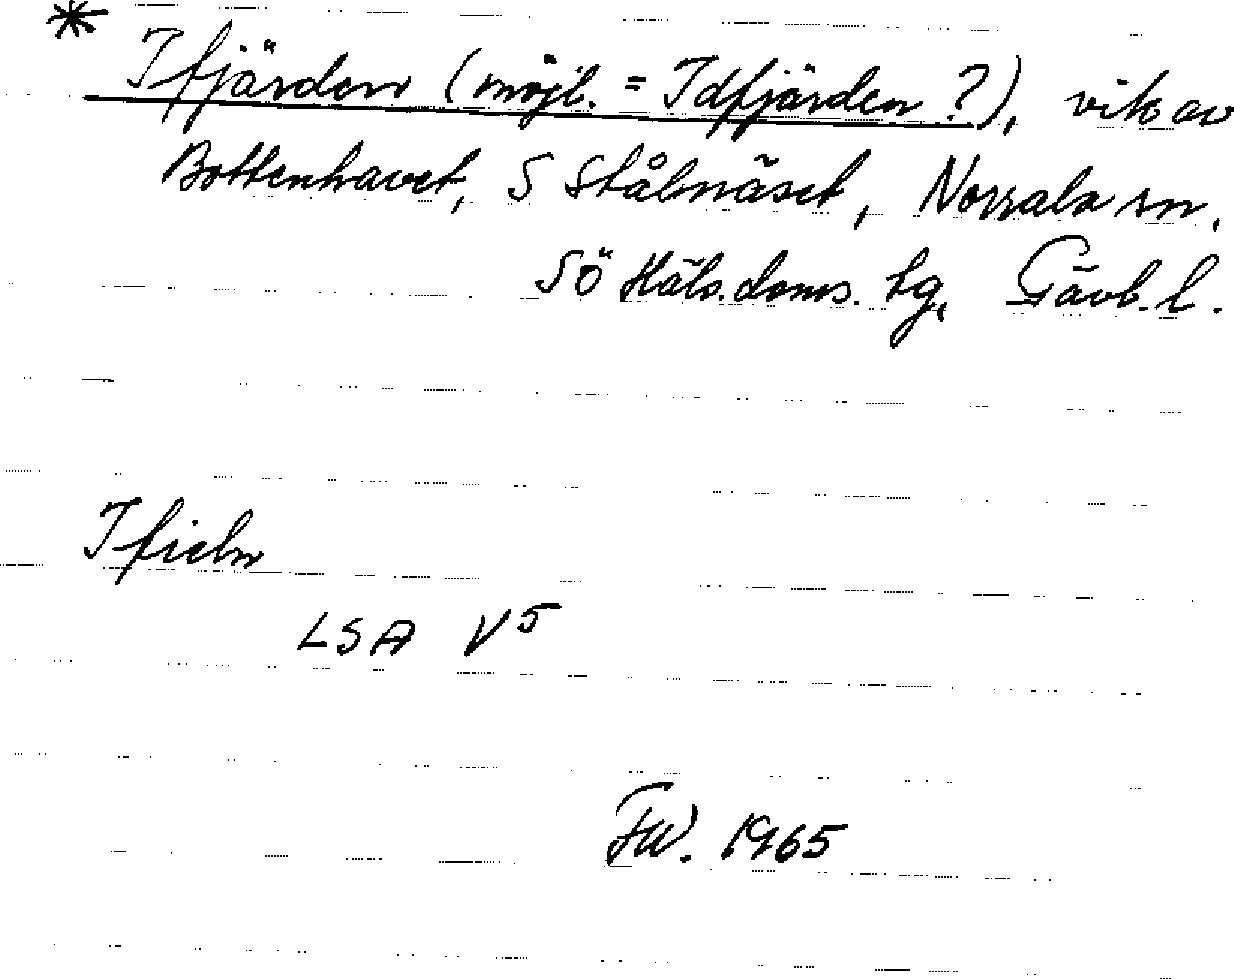 *
Ifjärden (möjl. = Idfjärden ?), vik av
Bottenhavet, S Stålnäset, Norrala sn,
SÖ Häls. doms. tg, Gävl. l.
Ifieln
LSA V5
FW. 1965